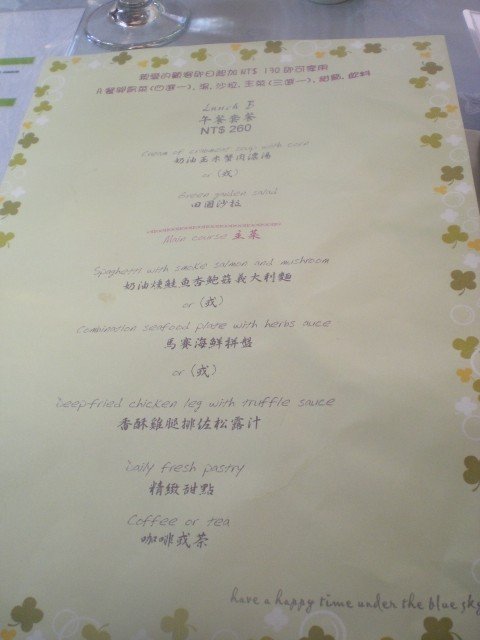 親愛的顧客即日起加 NT$ 130 即可享用
A 餐與飯菜(四選一), 湯, 沙拉, 主菜(三選一), 甜點, 飲料
Lunch B
午餐套餐
NT$ 260
Cream of crabmeat soup with corn
奶油玉米蟹肉濃湯
or (或)
Green garden salad
田園沙拉
Main course 主菜
Spaghetti with smoke salmon and mushroom
奶油燻鮭魚杏鮑菇義大利麵
or (或)
Combination seafood plate with herbs auce
馬賽海鮮拼盤
or (或)
Deep-fried chicken leg with truffle sauce
香酥雞腿排佐松露汁
Daily fresh pastry
精緻甜點
Coffee or tea
咖啡或茶
have a happy time under the blue sky